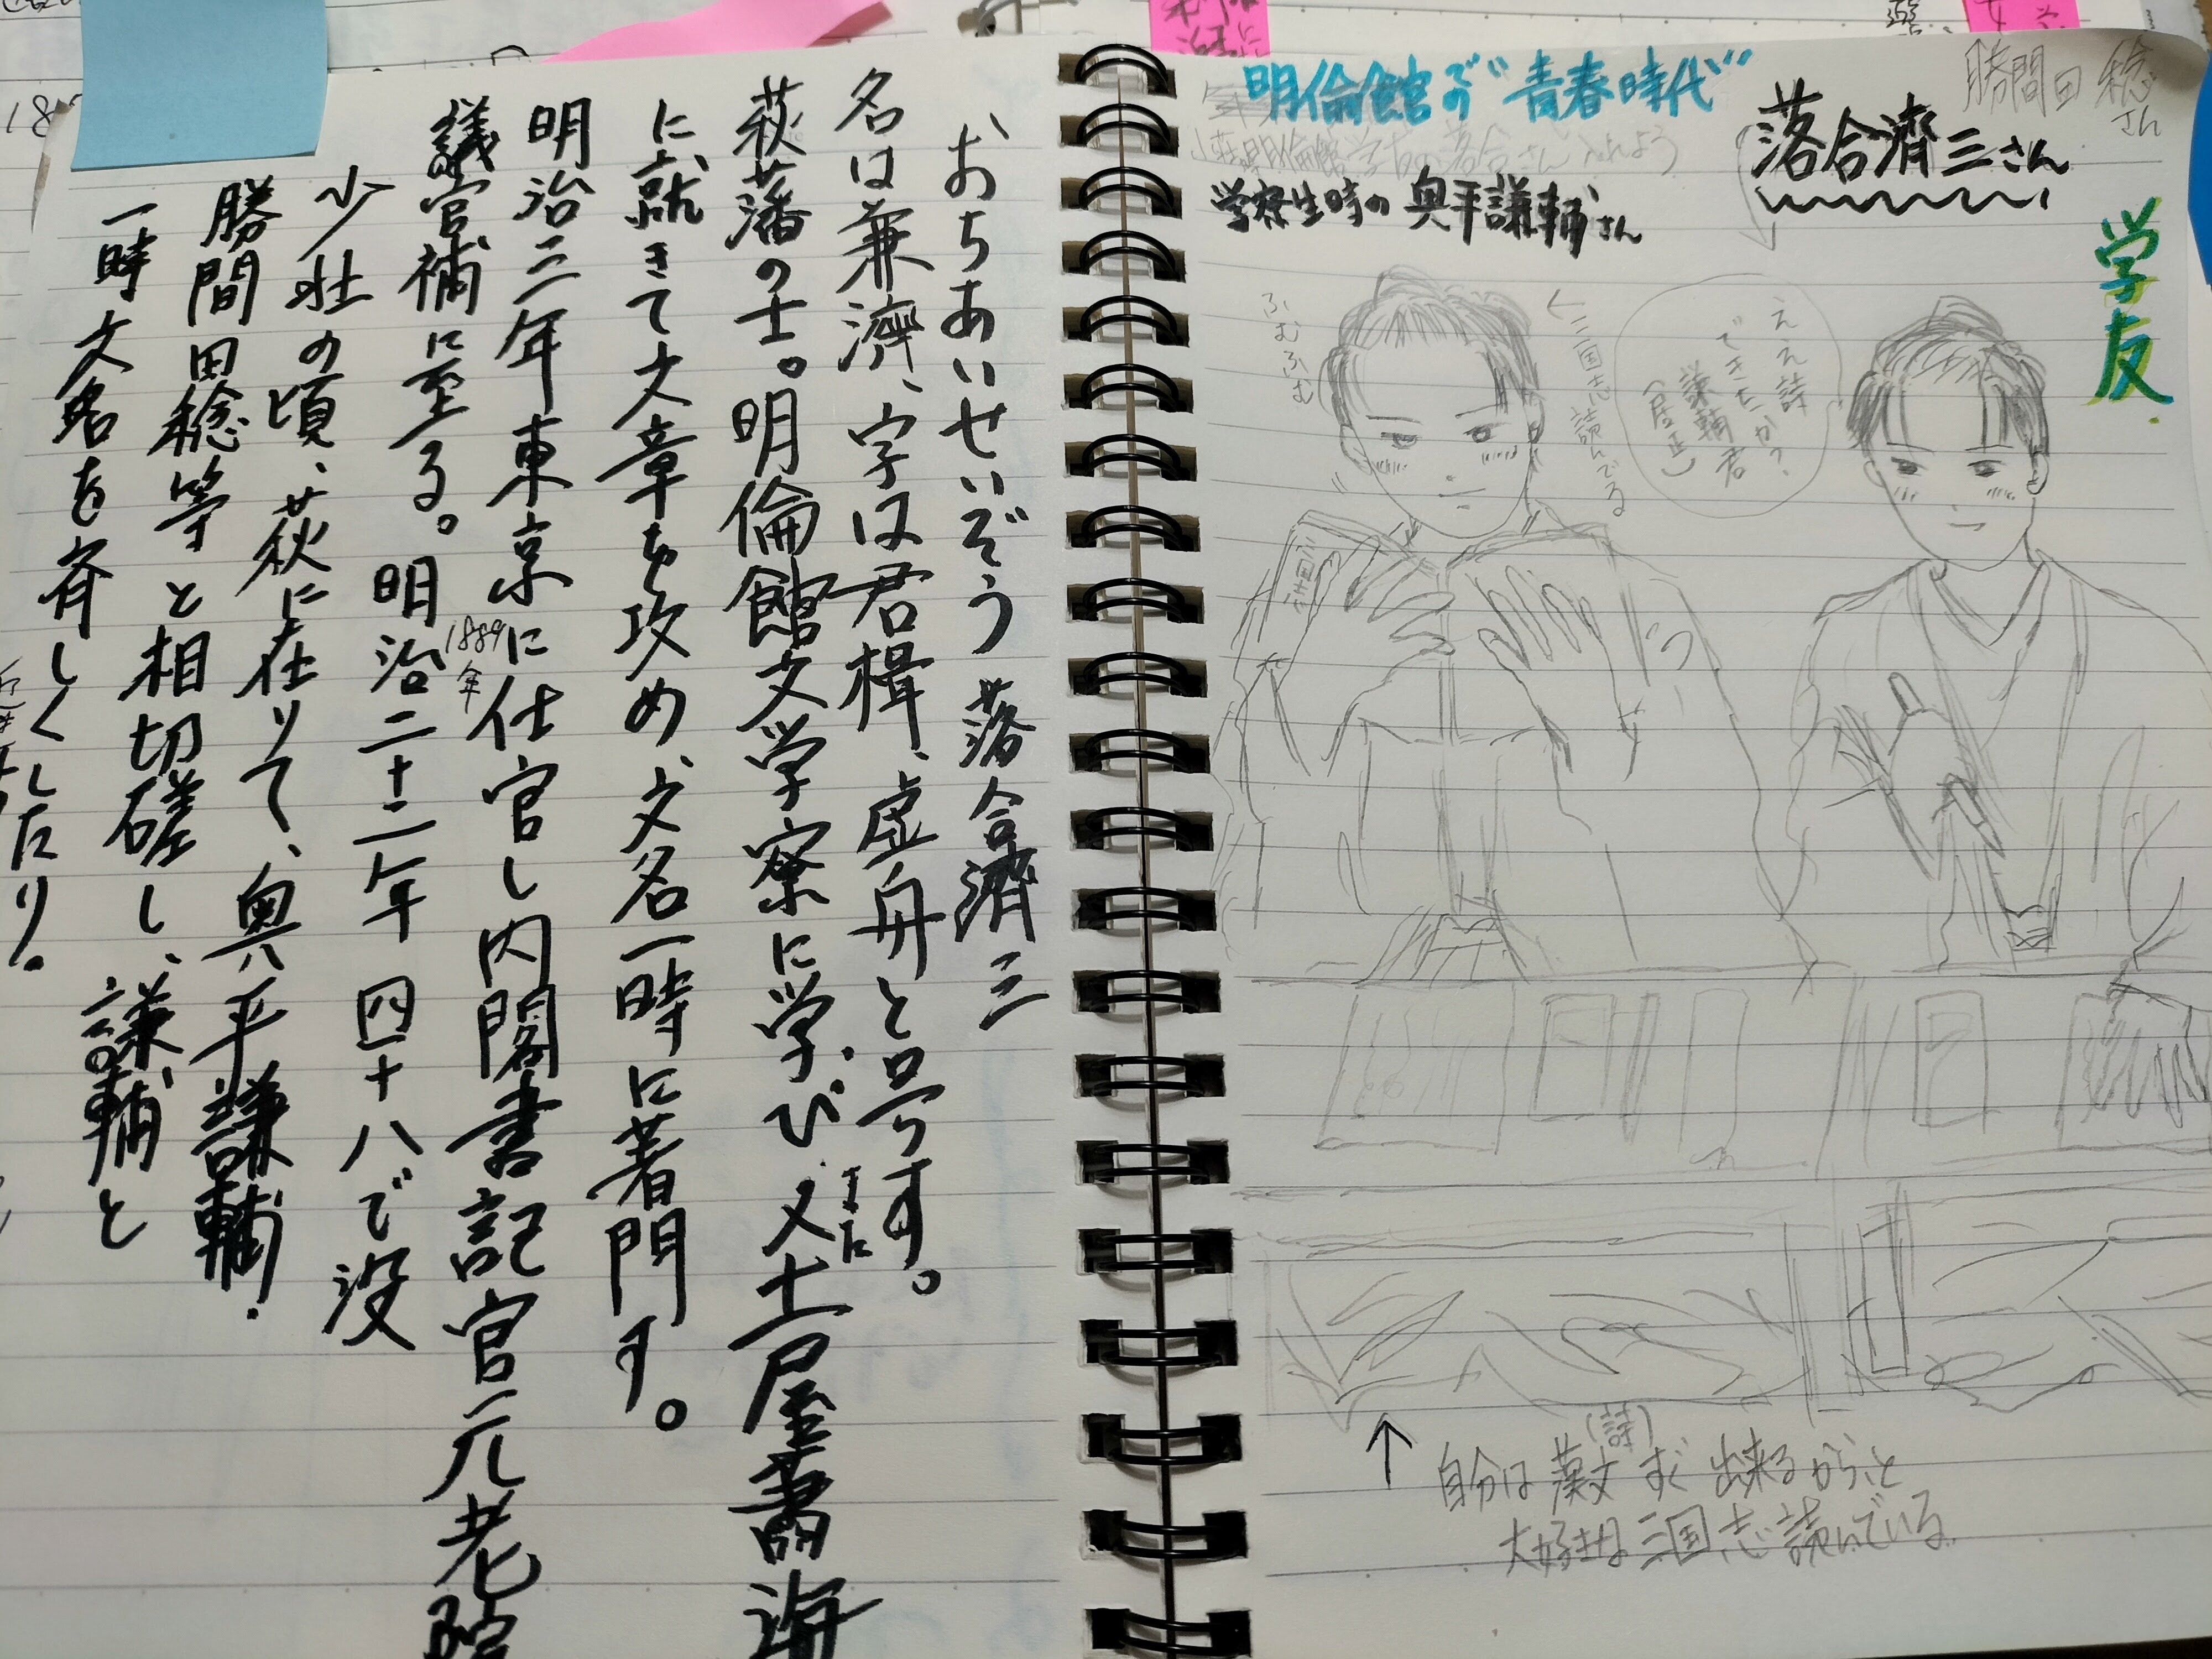 おちあいせいぞう 落合濟三
名は兼濟、字は君楫、虚舟と号す。
萩藩の士。明倫館文学寮に学び、又土屋蕭海
に就きて文章を攻め、文名一時に著門す。
明治三年東京に仕官し内閣書記官元老院
議官補に至る。明治二十二年 四十八で没
1889年
少壮の頃、萩に在りて、奥平謙輔・
勝間田稔等と相切磋し、謙輔と
一時文名を斉しくしたり。
明倫館での"青春時代"
勝間田 稔さん
落合濟三さん
学寮生時の 奥平謙輔さん
学友
ええ詩
できたか?
謙輔君
(居正)
く三国志読んでる
ふむふむ
三国志
(詩)
↑ 自分は漢文すぐ出来るから、と
大好きな三国志読んでいる